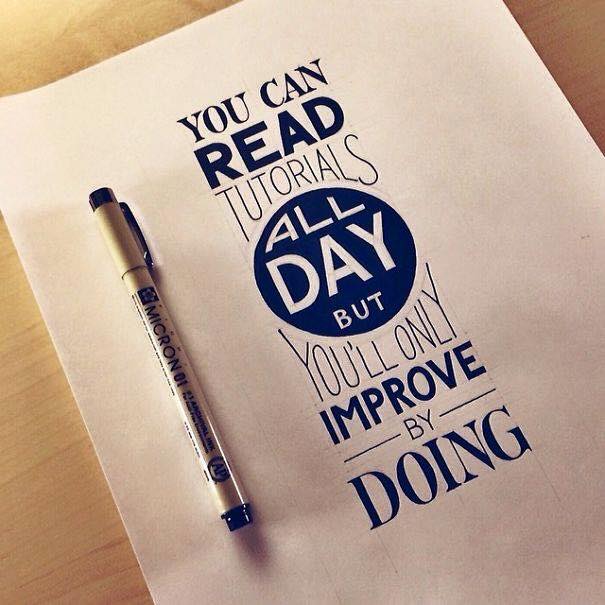 YOU CAN
READ
TUTORIALS
ALL
DAY
BUT
YOU'LL ONLY
IMPROVE
BY
DOING
MICRON 01